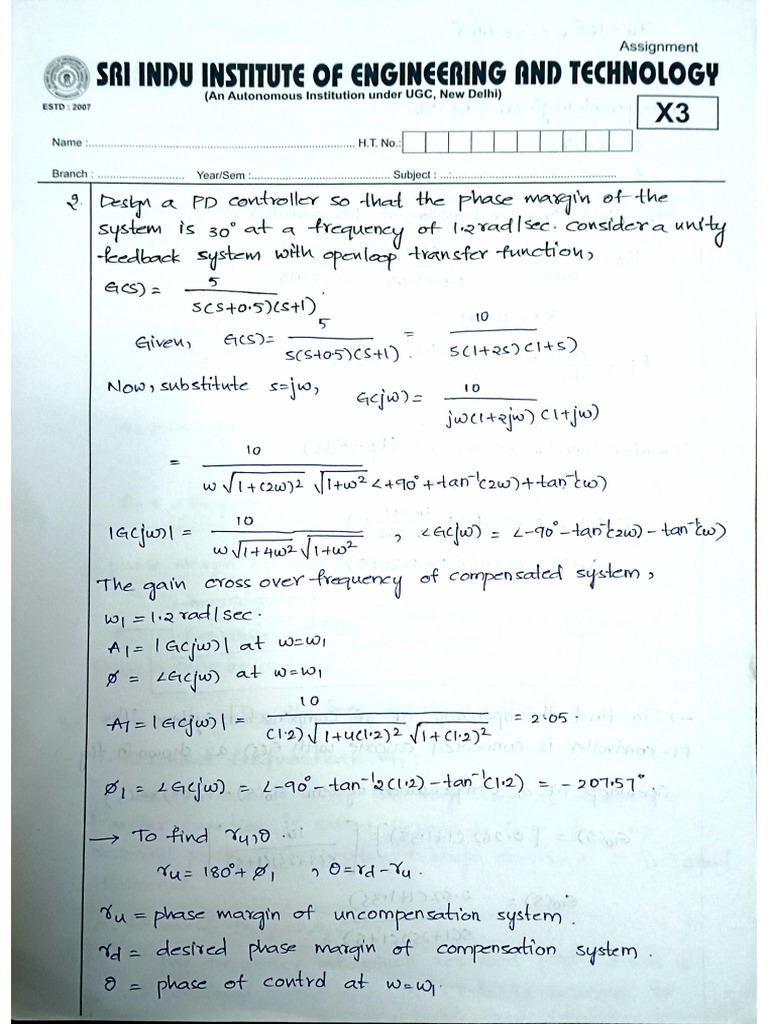 Assignment
SRI INDU INSTITUTE OF ENGINEERING AND TECHNOLOGY
(An Autonomous Institution under UGC, New Delhi)
ESTD : 2007
X3
Name : H.T. No.:
Branch : Year/Sem : Subject :
2. Design a PD controller so that the phase margin of the
system is 30° at a frequency of 1.2 rad/sec. consider a unity
feedback system with openloop transfer function,
G(s) = 5 / s(s+0.5)(s+1).
Given, G(s) = 5 / s(s+0.5)(s+1). = 10 / s(1+2s)(1+s)
Now, substitute s=jω, G(jω) = 10 / jω(1+2jω)(1+jω)
= 10 / ω√1+(2ω)² √1+ω² ∠+90°+tan⁻¹(2ω)+tan⁻¹(ω)
|G(jω)| = 10 / ω√1+4ω² √1+ω² , ∠G(jω) = ∠-90°-tan⁻¹(2ω)-tan⁻¹(ω)
The gain cross over frequency of compensated system,
ω1 = 1.2 rad/sec.
A1 = |G(jω)| at ω=ω1
ø = ∠G(jω) at ω=ω1
A1 = |G(jω)| = 10 / (1.2)√1+4(1.2)² √1+(1.2)² = 2.05.
ø1 = ∠G(jω) = ∠-90°-tan⁻¹2(1.2)-tan⁻¹(1.2) = -207.57°.
→ To find ru,θ.
ru = 180°+ø1 , θ=rd-ru.
ru = phase margin of uncompensation system.
rd = desired phase margin of compensation system.
θ = phase of control at ω=ω1.